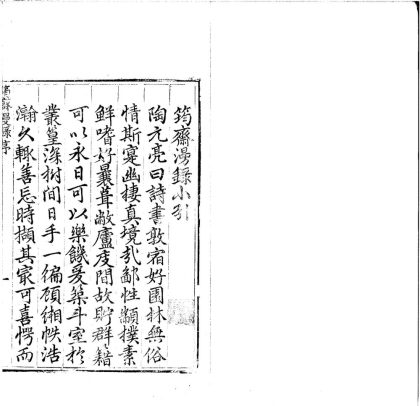 筠齋漫錄小引
陶元亮曰詩書敦宿好園林無俗
情斯寔幽棲真境哉鄙性顓撲素
鮮嗜好曩葺敝廬庋間故貯群籍
可以永日可以樂饑爰築斗室於
叢篁深樹間日手一編顧緗帙浩
瀚久輒善忘時擷其㝡可喜愕而
筠齋漫錄序
一